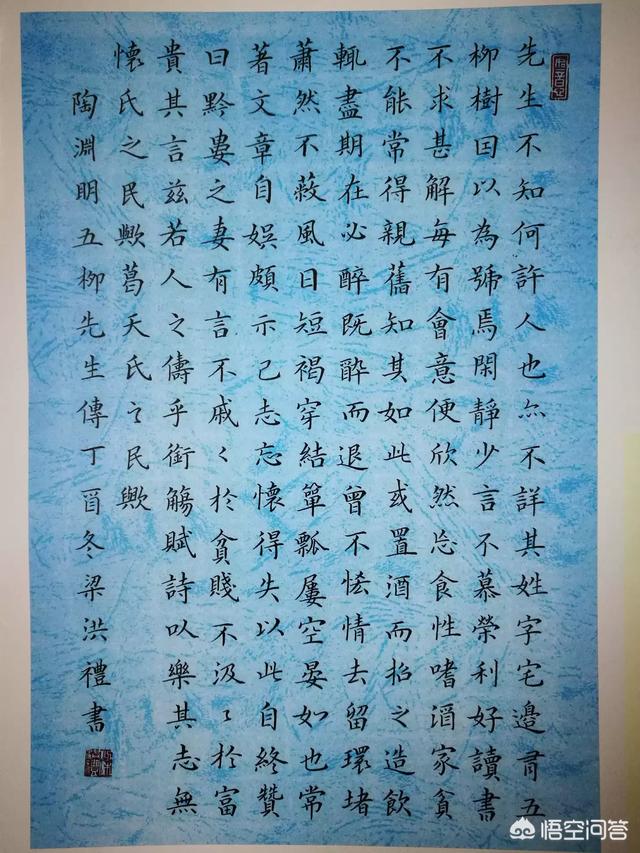 先生不知何許人也亦不詳其姓字宅邊有五
柳樹因以為號焉閑靜少言不慕榮利好讀書
不求甚解每有會意便欣然忘食性嗜酒家貧
不能常得親舊知其如此或置酒而招之造飲
輒盡期在必醉既醉而退曾不恡情去留環堵
蕭然不蔽風日短褐穿結簞瓢屢空晏如也常
著文章自娛頗示己志忘懷得失以此自終贊
曰黔婁之妻有言不戚々於貧賤不汲々於富
貴其言茲若人之儔乎銜觴賦詩以樂其志無
懷氏之民歟葛天氏之民歟
陶淵明五柳先生傳丁酉冬梁洪禮書
悟空问答